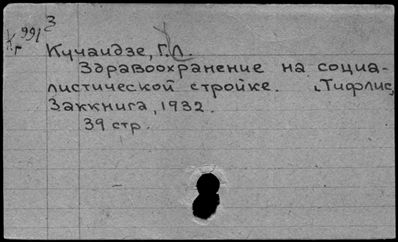 Кг 991
3
Кучаидзе, Г.Л.
Здравоохранение на социа-
листической стройке. Тифлис,
Заккнига, 1932.
39 стр.